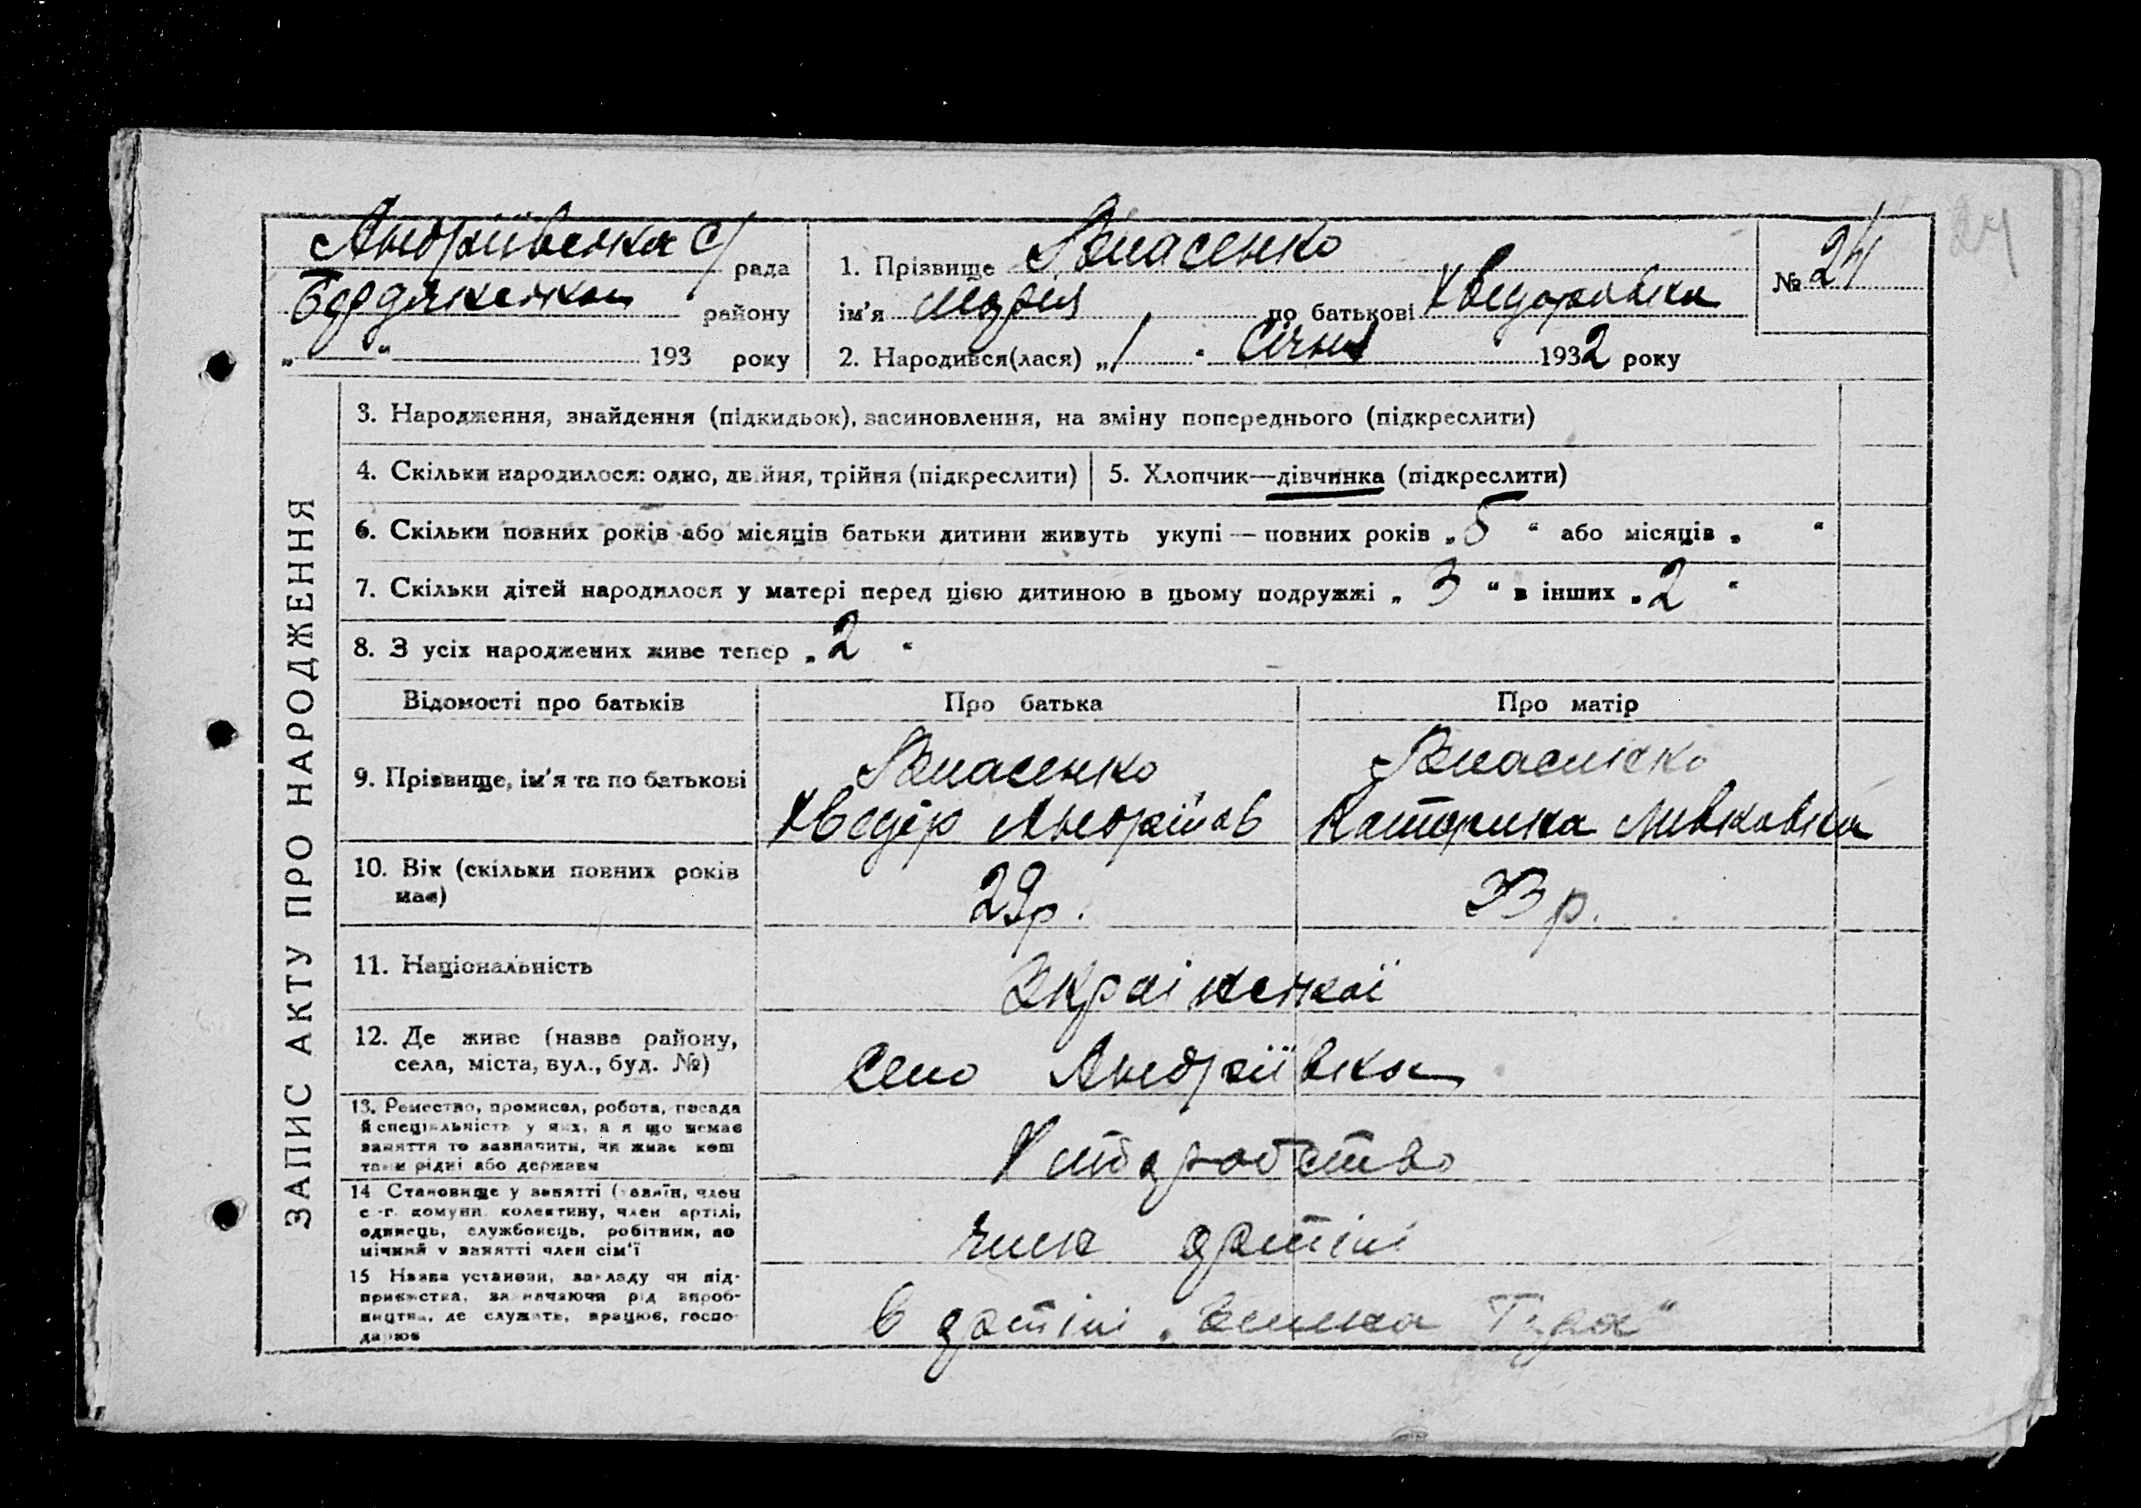 Андріївська с/рада
Бердянськ району
„ “ 193 року
1. Прізвище Власенко
ім'я Марія по батькові Хведоровна
2. Народився(лася) „1“ Січня 1932 року
№ 24
24
ЗАПИС АКТУ ПРО НАРОДЖЕННЯ
3. Народження, знайдення (підкидьок), засиновлення, на зміну попереднього (підкреслити)
4. Скільки народилося: одно, двійня, трійня (підкреслити)
5. Хлопчик—дівчинка (підкреслити)
6. Скільки повних років або місяців батьки дитини живуть укупі — повних років „5“ або місяців „ “
7. Скільки дітей народилося у матері перед цією дитиною в цьому подружжі „3“ в інших „2“
8. З усіх народжених живе тепер „2“
Відомості про батьків
Про батька
Про матір
9. Прізвище, ім'я та по батькові
Власенко
Хведір Андріїов
Власенко
Катерина Левковна
10. Вік (скільки повних років
має)
29 р.
33 р.
11. Національність
Української
12. Де живе (назва району,
села, міста, вул., буд. №)
село Андріївка
13. Ремество, промисел, робота, посада
й спеціяльність у них, а якщо немає
заняття то зазначити, чи живе кош
тами рідні або держави
Хліборобство
14 Становище у занятті (хазяїн, член
с.-г. комуни, колективу, член артілі,
одинець, службовець, робітник, по
мічний у занятті член сім'ї
член артілі
15 Назва установи, закладу чи під-
приємства, зазначаючи рід вироб-
ництва, де служить, працює, госпо-
дарює
в артілі „Велика Гора“